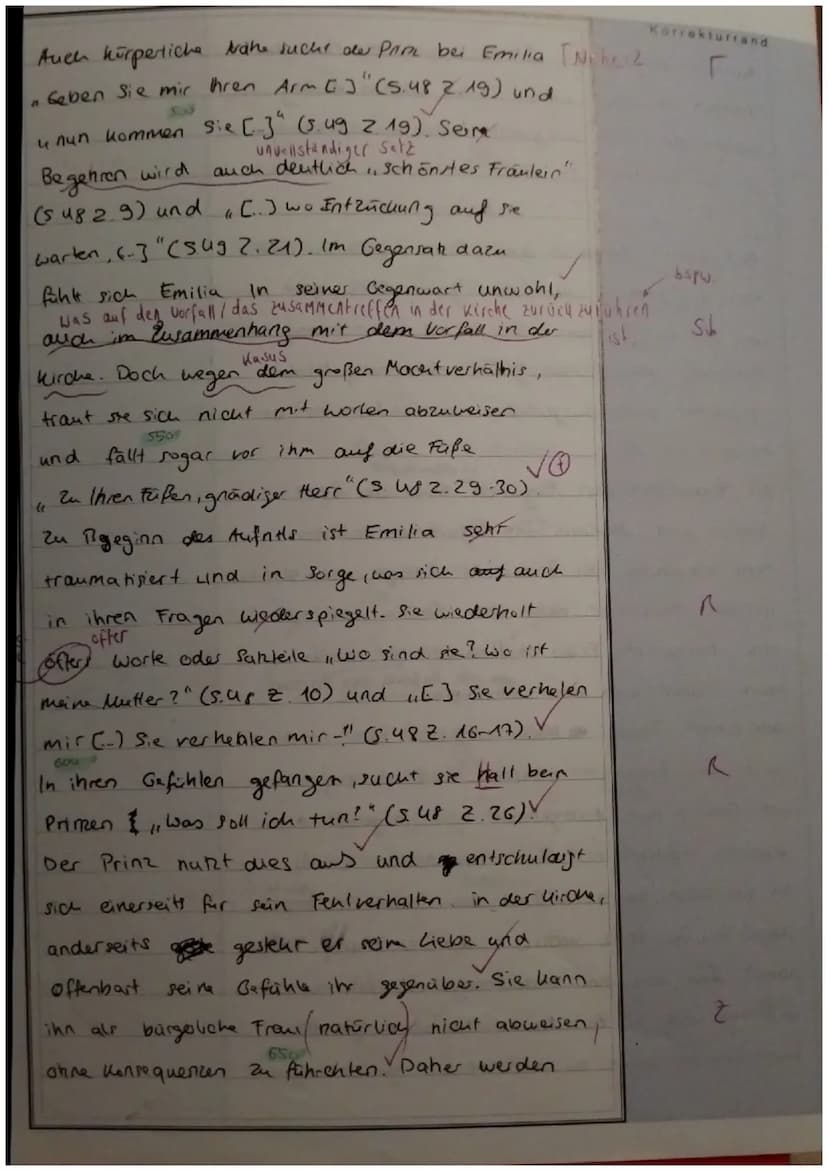 Korrekturrand
Auch körperliche Nähe sucht der Prinz bei Emilia
Γ
„Geben Sie mir Ihren Arm []" (S.48 Z 19) und
500
„nun kommen Sie [..]" (S.49 Z 19). Sein
unvollständiger Satz
Begehren wird auch deutlich „schönstes Fräulein"
(S 48 Z. 9) und „[..) wo Entzückung auf sie
warten, [..]" (S49 Z. 21). Im Gegensatz dazu
fühlt sich Emilia In seiner Gegenwart unwohl,
bspw.
was auf den Vorfall / das Zusammentreffen in der Kirche zurückzuführen
ist.
auch im Zusammenhang mit dem Vorfall in der
Sb
Kasus
Kirche. Doch wegen dem großen Machtverhältnis,
traut sie sich nicht mit Worten abzuweisen
550
und fällt sogar vor ihm auf die Füße
„Zu Ihren Füßen, gnädiger Herr" (S 48 Z. 29-30).
Zu Beginn des Auftritts ist Emilia sehr
traumatisiert und in Sorge, was sich auf auch
in ihren Fragen wiederspiegelt. Sie wiederholt
R
öfter
öfters Worte oder Satzteile „Wo sind sie? Wo ist
meine Mutter?" (S.48 Z. 10) und „[] Sie verhelen
mir [..) Sie verhehlen mir -" (S.48 Z. 16-17).
600
In ihren Gefühlen gefangen, sucht sie Hall beim
R
Prinzen „Was soll ich tun?" (S. 48 Z. 26).
Der Prinz nutzt dies aus und entschuldigt
sich einerseits für sein Fehlverhalten in der Kirche,
anderseits gesteht er seine Liebe und
offenbart seine Gefühle ihr gegenüber. Sie kann
ihn als bürgerliche Frau (natürlich) nicht abweisen,
Z
650
ohne Konsequenzen zu führchten. Daher werden